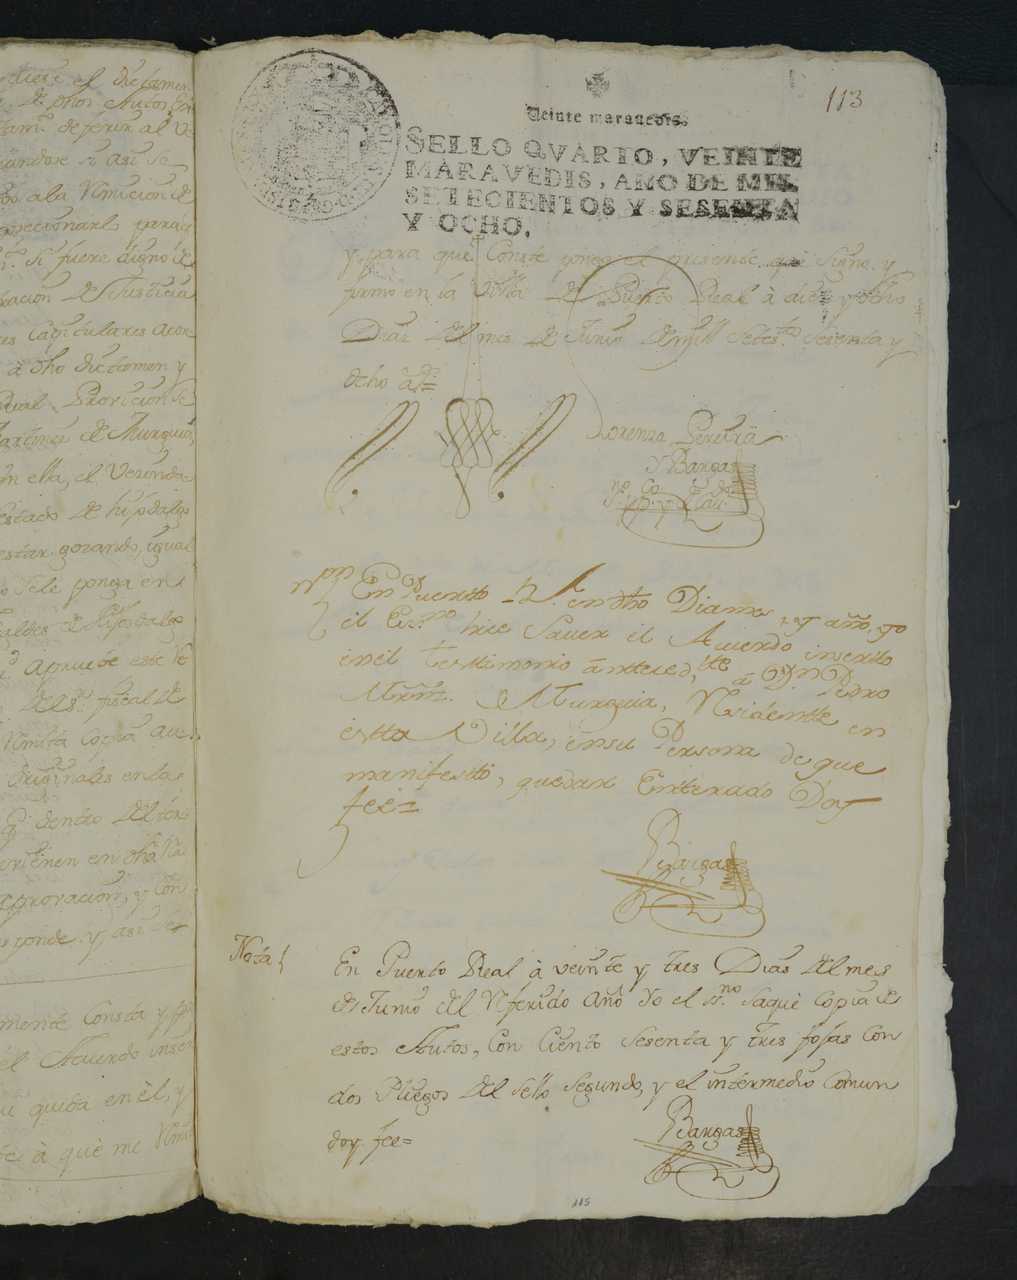 diere el dictamen
de dhos Autos, en
deferir al
su Asi se
bo a la Remicion de
para
Si fuere digno de
de Justicia
Capitulares
à dho dictamen y
Real Provicion se
Martinez de Murguia
en ella, el
estado de hijosdalgo
estar gozando, igual
se le ponga en
de Hijosdalgo
apruebe este
fiscal de
Remita Copia
originales en la
dentro del ter
en dha
aprovacion, y con
y asi
mente Consta y
el Acuerdo inser
queda en èl, y
à què me
113
Veinte maravedis.
SELLO QVARTO, VEINTE
MARAVEDIS, AÑO DE MIL
SETECIENTOS Y SESENTA
Y OCHO.
y para que Conste pongo el presente que Signo y
firmo en la Villa de Puerto Real à diez y ocho
Dias del mes de Junio de mill Setes.tos Sesenta y
ocho a.s=
Lorenzo Pereyra
y Bargas
En Puerto R. en dho Dia mes y año, yo
el Es.no hice Saver el Acuerdo inserto
en el testimonio anteced.te a Dn Pedro
Mrnz. de Murguia, Residente en
estta Villa, en su Persona de que
manifestò, quedar Enterado Doy
fee=
Bargas
Nota
En Puerto Real à veinte y tres Dias del mes
de Junio del Referido Año Yo el ss.no Saquè Copia de
estos Autos, con Ciento Sesenta y tres fojas con
dos Pliegos del Sello Segundo, y el intermedio Comun
doy fee=
Bargas
115